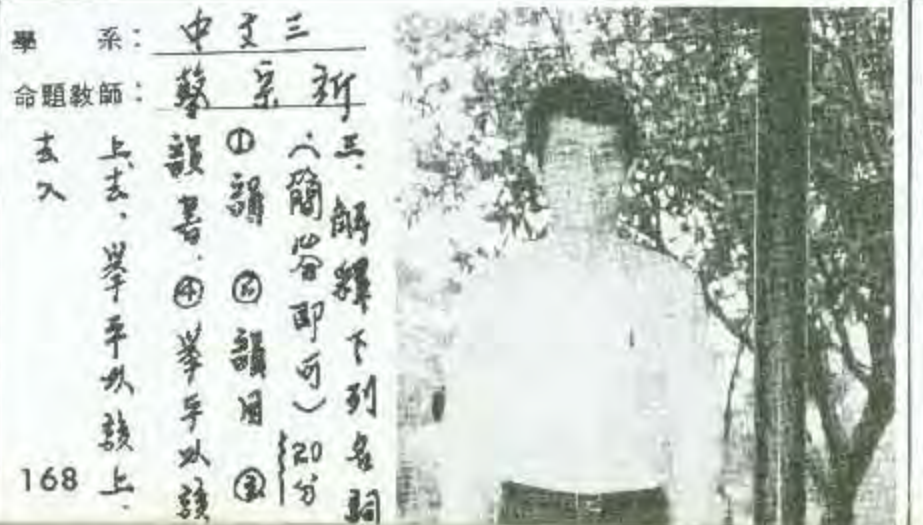 學 系：中文三
命題教師：蔡宗祈
三、解釋下列名詞
（簡答即可）20分
①韻 ②韻目 ③
韻書、④舉平以賅
上、去，舉平以賅上、
去入
168